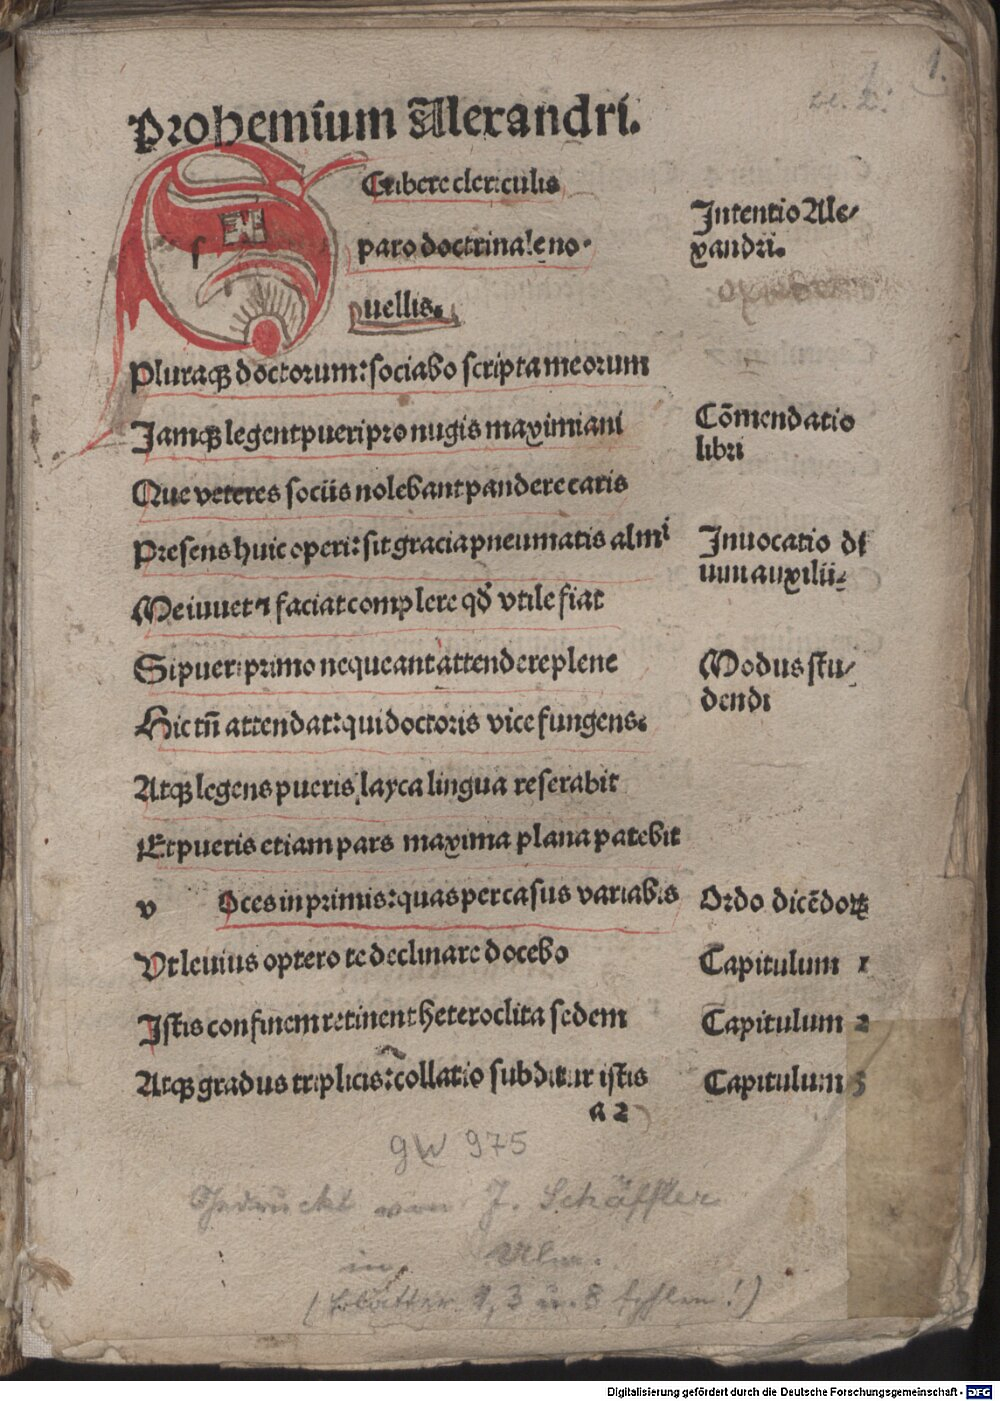 1.
Prohemium Alexandri.
Scribere clericulis
paro doctrinale no-
uellis.
Intentio Ale/
xandri.
Pluraqꝫ doctorum: sociabo scripta meorum
Jamqꝫ legent pueri pro nugis maximiani
Cōmendatio
libri
Que veteres sociis nolebant pandere caris
Presens huic operi: sit gracia pneumatis almi
Inuocatio di
uini auxilii-
Me iuuet ⁊ faciat complere qđ vtile fiat
Si pueri primo nequeant attendere plene
Modus stu/
dendi
Hic tn̄ attendat: qui doctoris vice fungens.
Atqꝫ legens pueris layca lingua reserabit
Et pueris etiam pars maxima plana patebit
v Oces in primis: quas per casus variabis
Ordo dicēdoꝝ
Vt leuius optero te declinare docebo
Capitulum 1
Istis confinem retinent heteroclita sedem
Capitulum 2
Atqꝫ gradus triplicis: collatio subditur istis
Capitulum 3
a 2
GW 975
Gedruckt von J. Schäffler
in Ulm.
(Blätter 1, 3 u. 8 fehlen!)
Digitalisierung gefördert durch die Deutsche Forschungsgemeinschaft - DFG